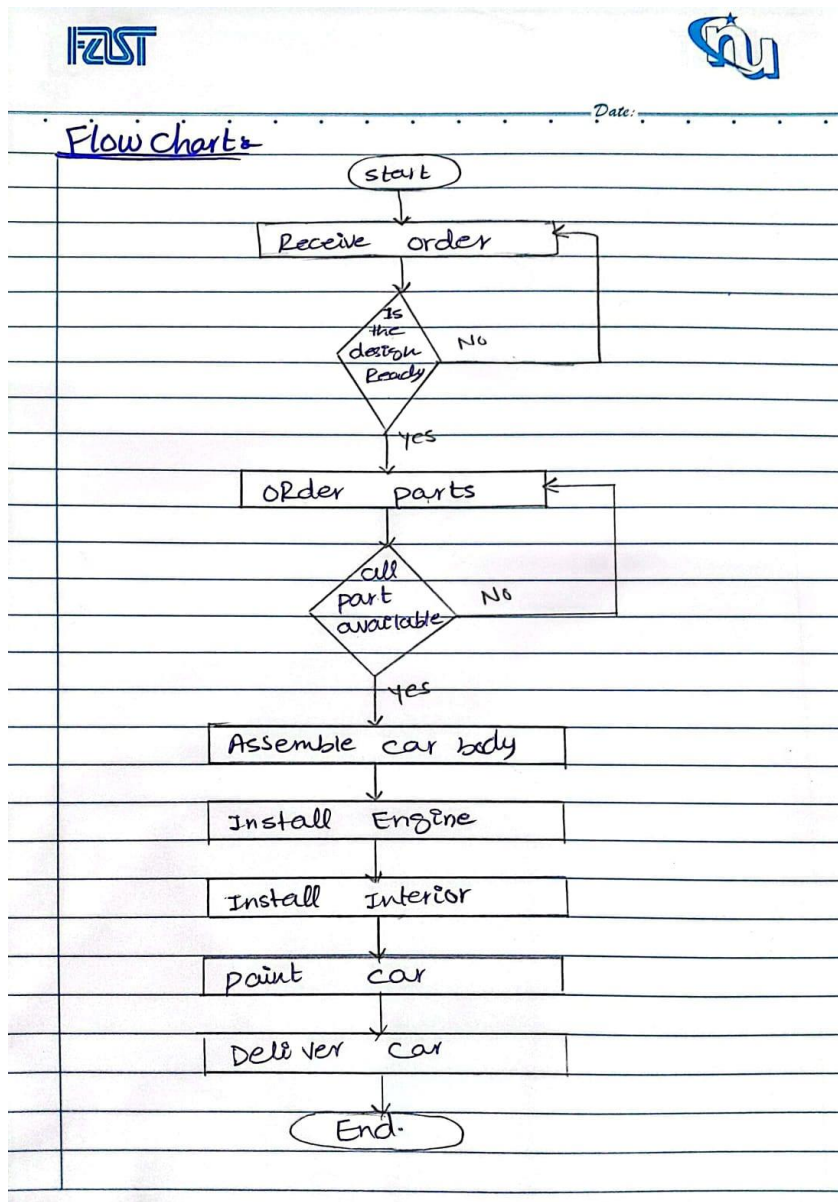 FAST
nu
Date:
Flow Chart:
start
Receive order
Is
the
design
Ready
No
yes
oRder parts
all
part
available
No
yes
Assemble car body
Install Engine
Install Interior
paint car
Deliver car
End.